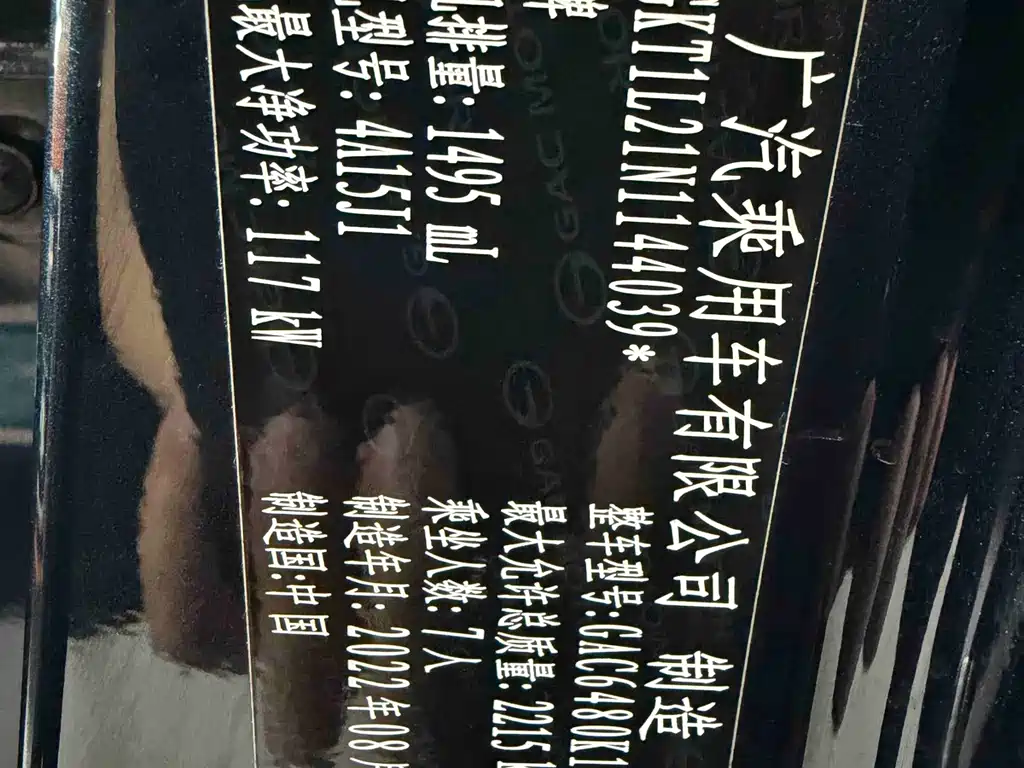 广汽乘用车有限公司 制造
牌
GKT1L21N1144039*
整车型号:GAC6480K1
排量: 1495 mL
最大允许总质量: 2215
型号: 4A15J1
乘坐人数: 7人
最大净功率: 117 kW
制造年月: 2022年08
制造国:中国
GAC MO
GAC